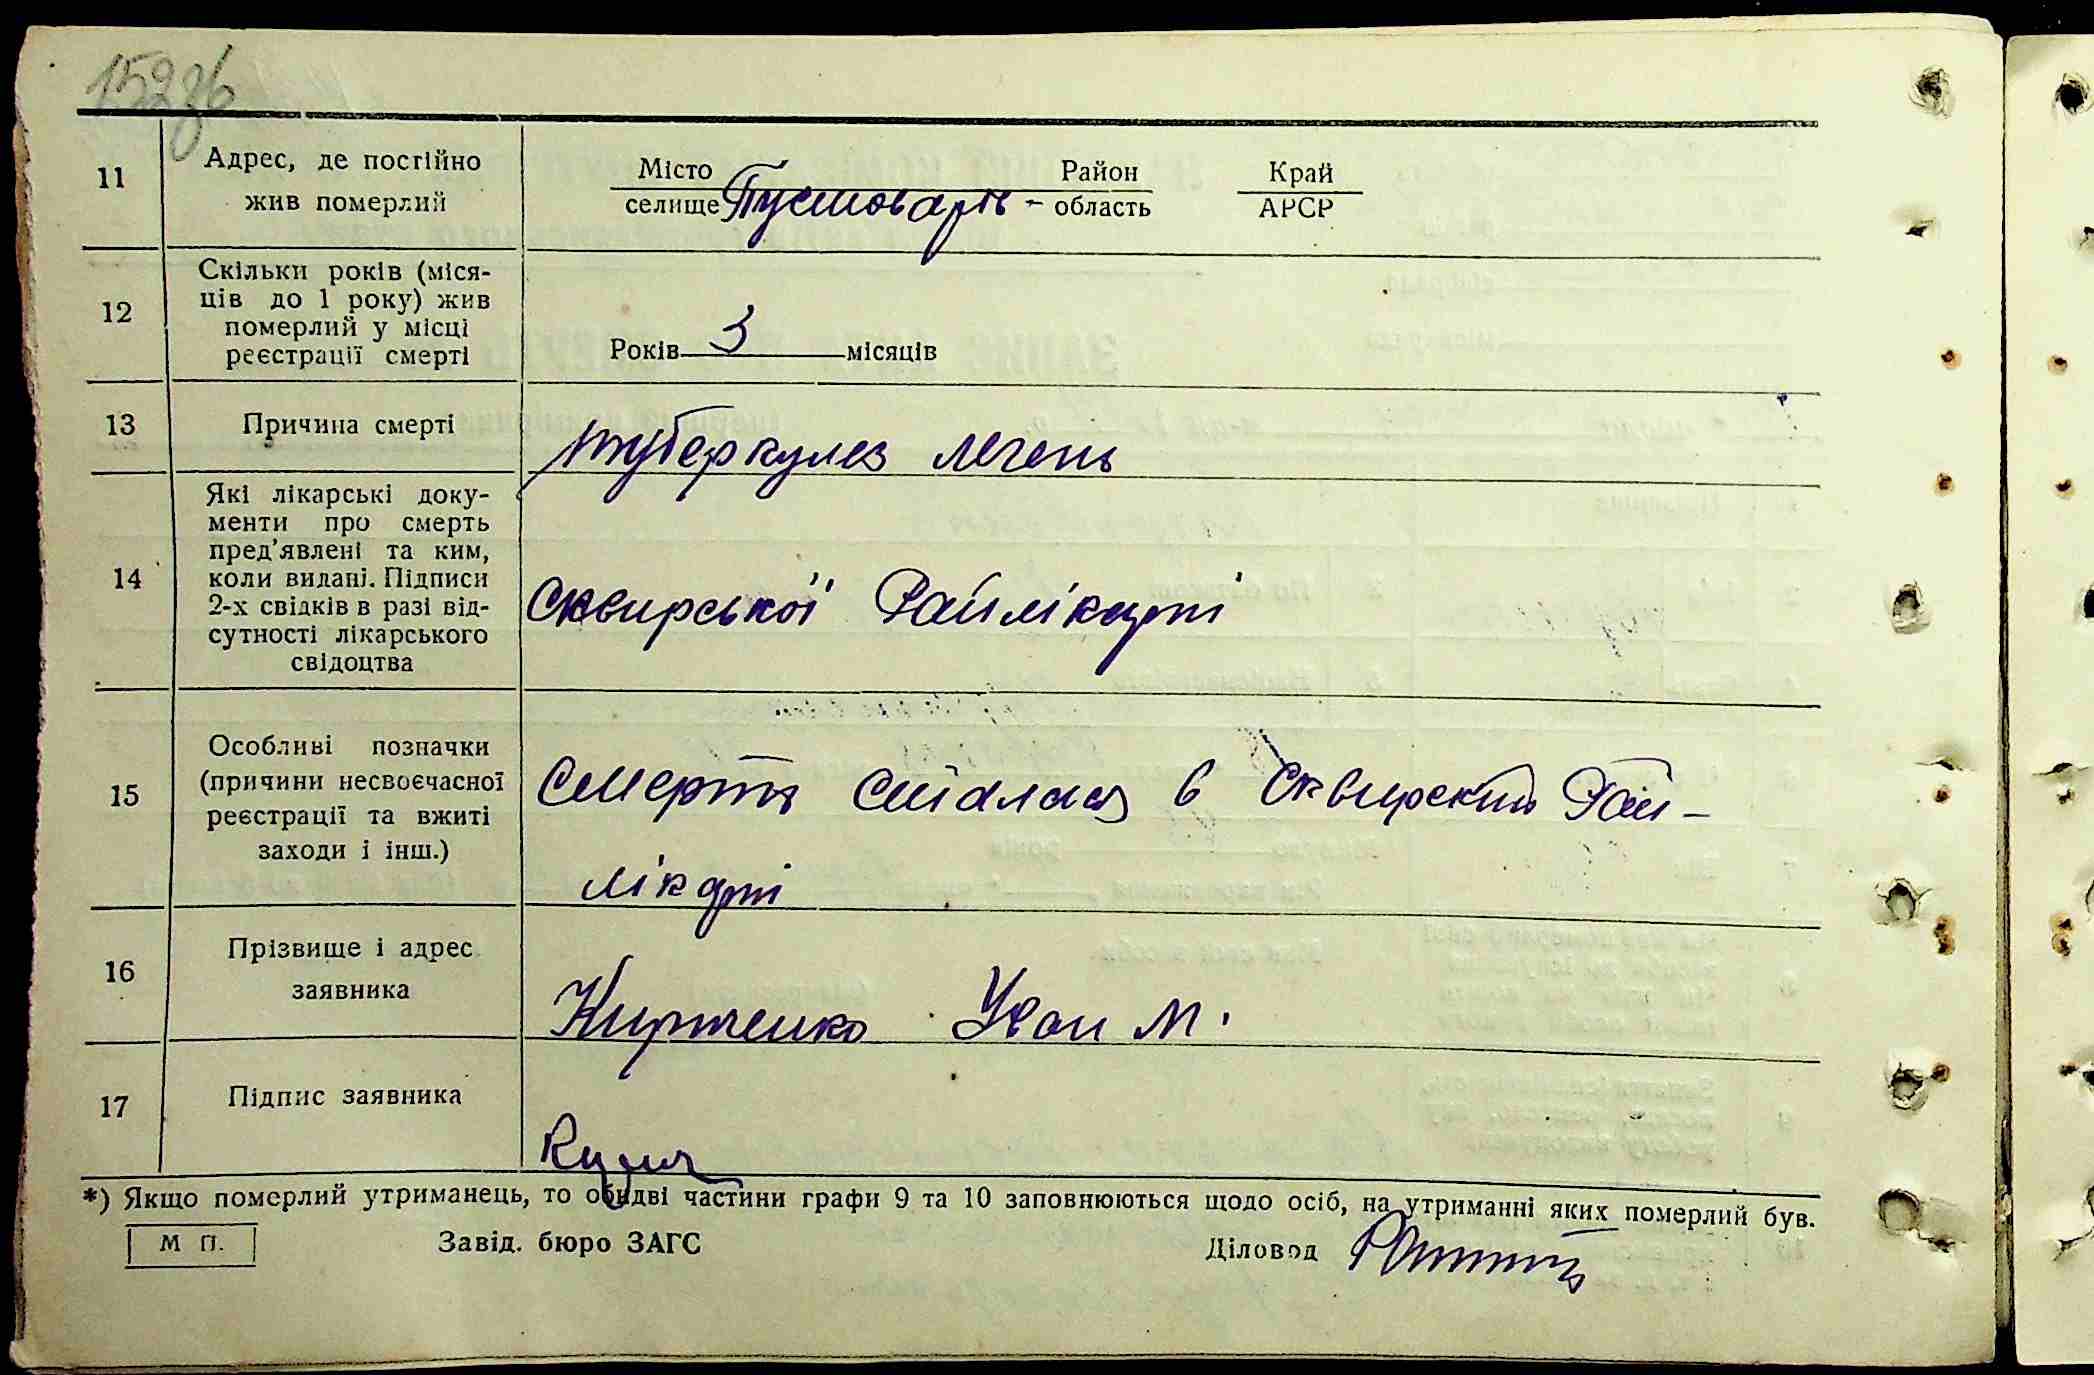 11
Адрес, де постійно
жив померлий
Місто
селище Пустоварів -
Район
область
Край
АРСР
12
Скільки років (міся-
ців до 1 року) жив
померлий у місці
реєстрації смерті
Років 3 місяців
13
Причина смерті
туберкулез легень
14
Які лікарські доку-
менти про смерть
пред'явлені та ким,
коли видані. Підписи
2-х свідків в разі від-
сутності лікарського
свідоцтва
Сквирської Райлікарні
15
Особливі позначки
(причини несвоєчасної
реєстрації та вжиті
заходи і інш.)
Смерть сталася в Сквирский Рай-
лікарні
16
Прізвище і адрес
заявника
Іван М.
17
Підпис заявника
*) Якщо померлий утриманець, то обидві частини графи 9 та 10 заповнюються щодо осіб, на утриманні яких померлий був.
М П.
Завід. бюро ЗАГС
Діловод